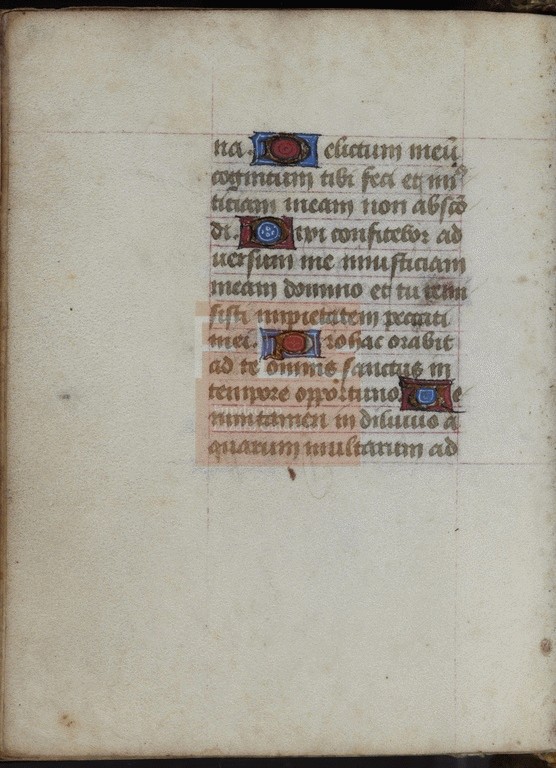 na. Delictum meū
cognitum tibi feci et iniu
sticiam meam non abscō
di. Dixi confitebor ad
uersum me iniusticiam
meam domino et tu remi
sisti impietatem peccati
mei. Pro hac orabit
ad te omnis sanctus in
tempore oportuno Ve
rumtamen in diluuio a
quarum multarum ad